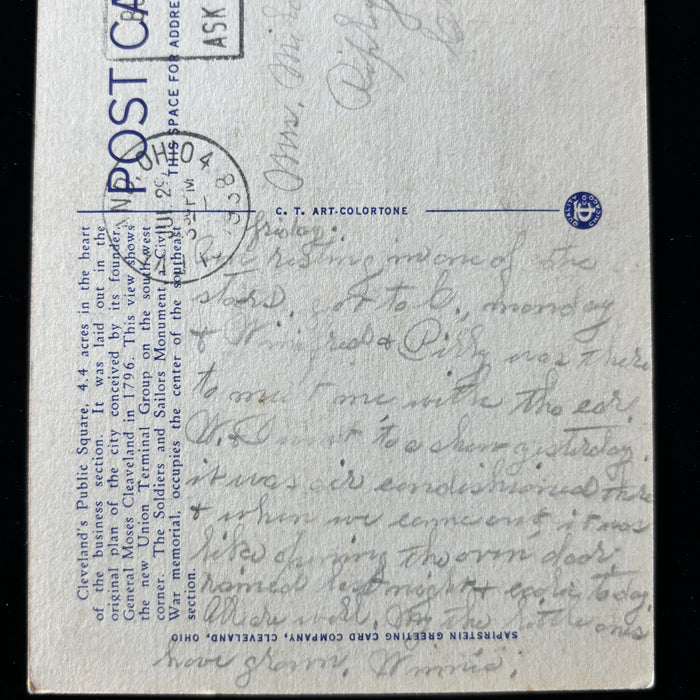 POST CA
THIS SPACE FOR ADDRE
ASK
OHIO
JUL 29
PM
1938
Mrs.
Ripley
C. T. ART-COLORTONE
QUALITY
Cleveland's Public Square, 4.4 acres in the heart
of the business section. It was laid out in the
original plan of the city conceived by its founder,
General Moses Cleaveland in 1796. This view shows
the new Union Terminal Group on the south-west
corner. The Soldiers and Sailors Monument, a Civil
War memorial, occupies the center of the southeast
section.
Friday.
resting in one of the
stores. Got to C., monday
& Winifred & Billy was there
to meet me with the car.
W. & I went to a show yesterday.
it was air condishioned there
& when we came out it was
like opening the oven door.
rained last night & cooler today.
All are well. My the little ones
have grown. Winnie.
SAPIRSTEIN GREETING CARD COMPANY, CLEVELAND, OHIO